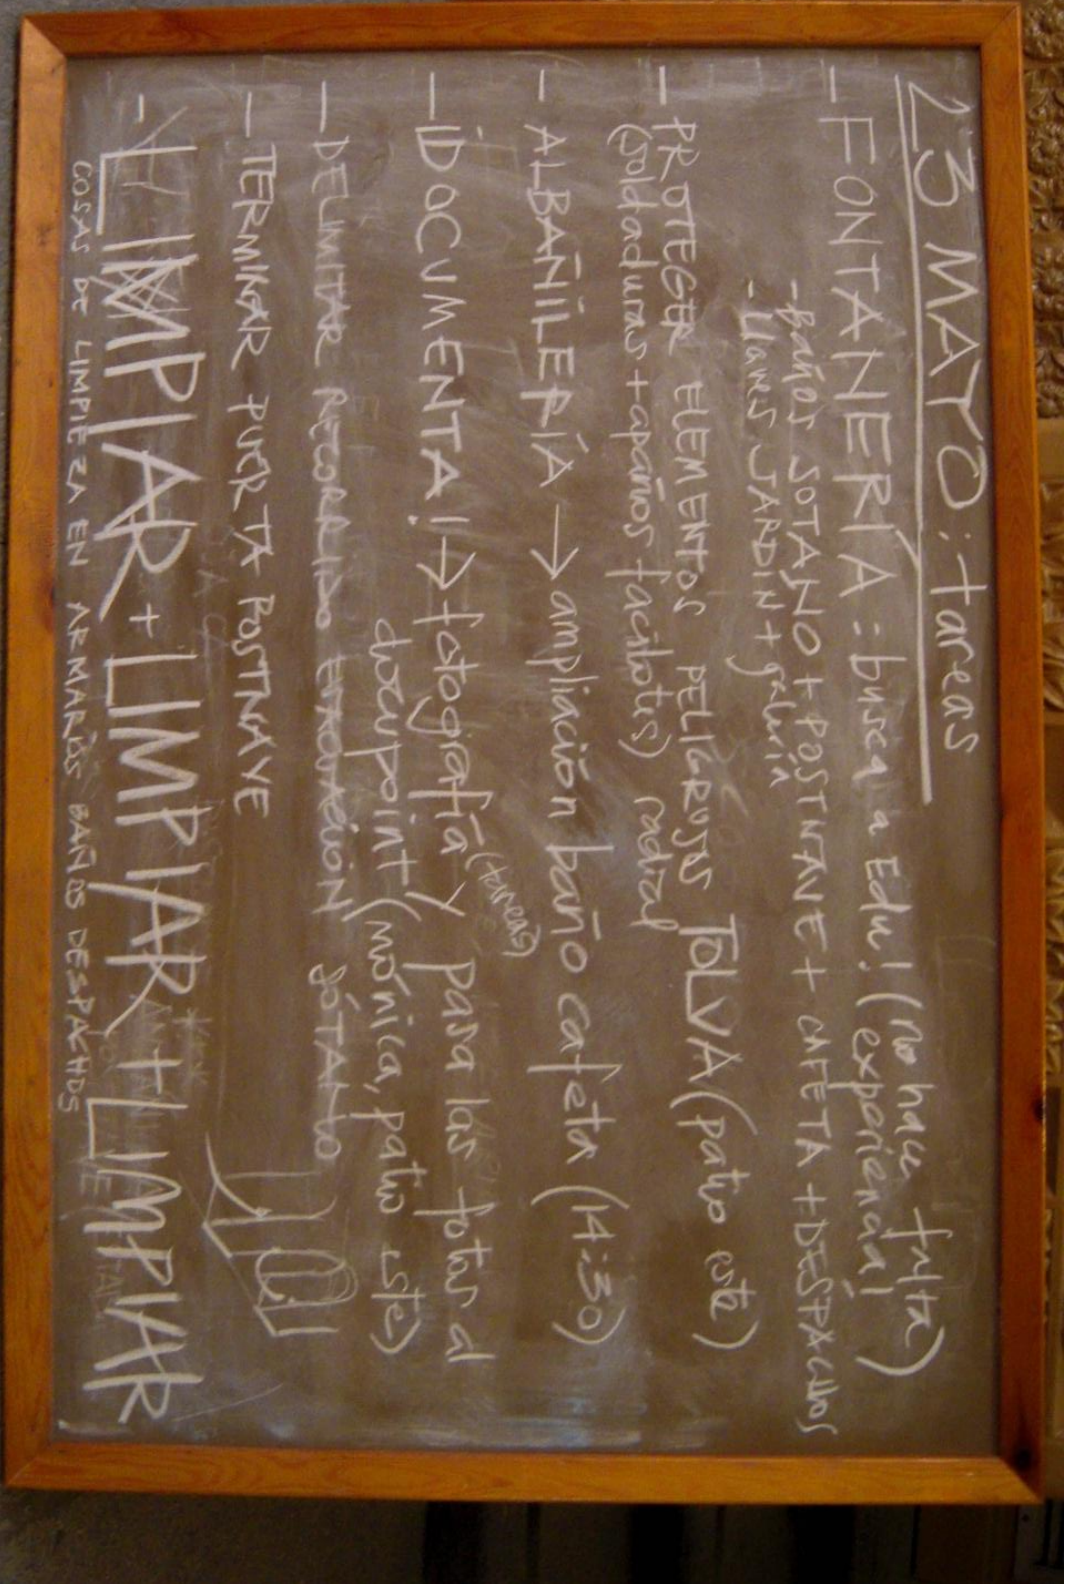 23 MAYO: tareas
- FONTANERÍA: busca a Edu! (no hace falta experiencia)
- Baños SOTANO + POSTNAVE + CAFETA + DESPACHOS
- Llaves JARDIN + galería
- PROTEGER ELEMENTOS PELIGROSOS TOLVA (patio este)
(soldaduras + apaños facilotes) radial
- ALBAÑILERÍA → ampliación baño cafeta (14:30)
- ¡DOCUMENTA! → fotografía y pasa las fotos al
(tareas)
docupoint (mónica, patio este)
- DELIMITAR RECORRIDO EVACUACIÓN SÓTANO
- TERMINAR PUERTA POSTNAVE
- LIMPIAR + LIMPIAR + LIMPIAR
COSAS DE LIMPIEZA EN ARMARIOS BAÑOS DESPACHOS